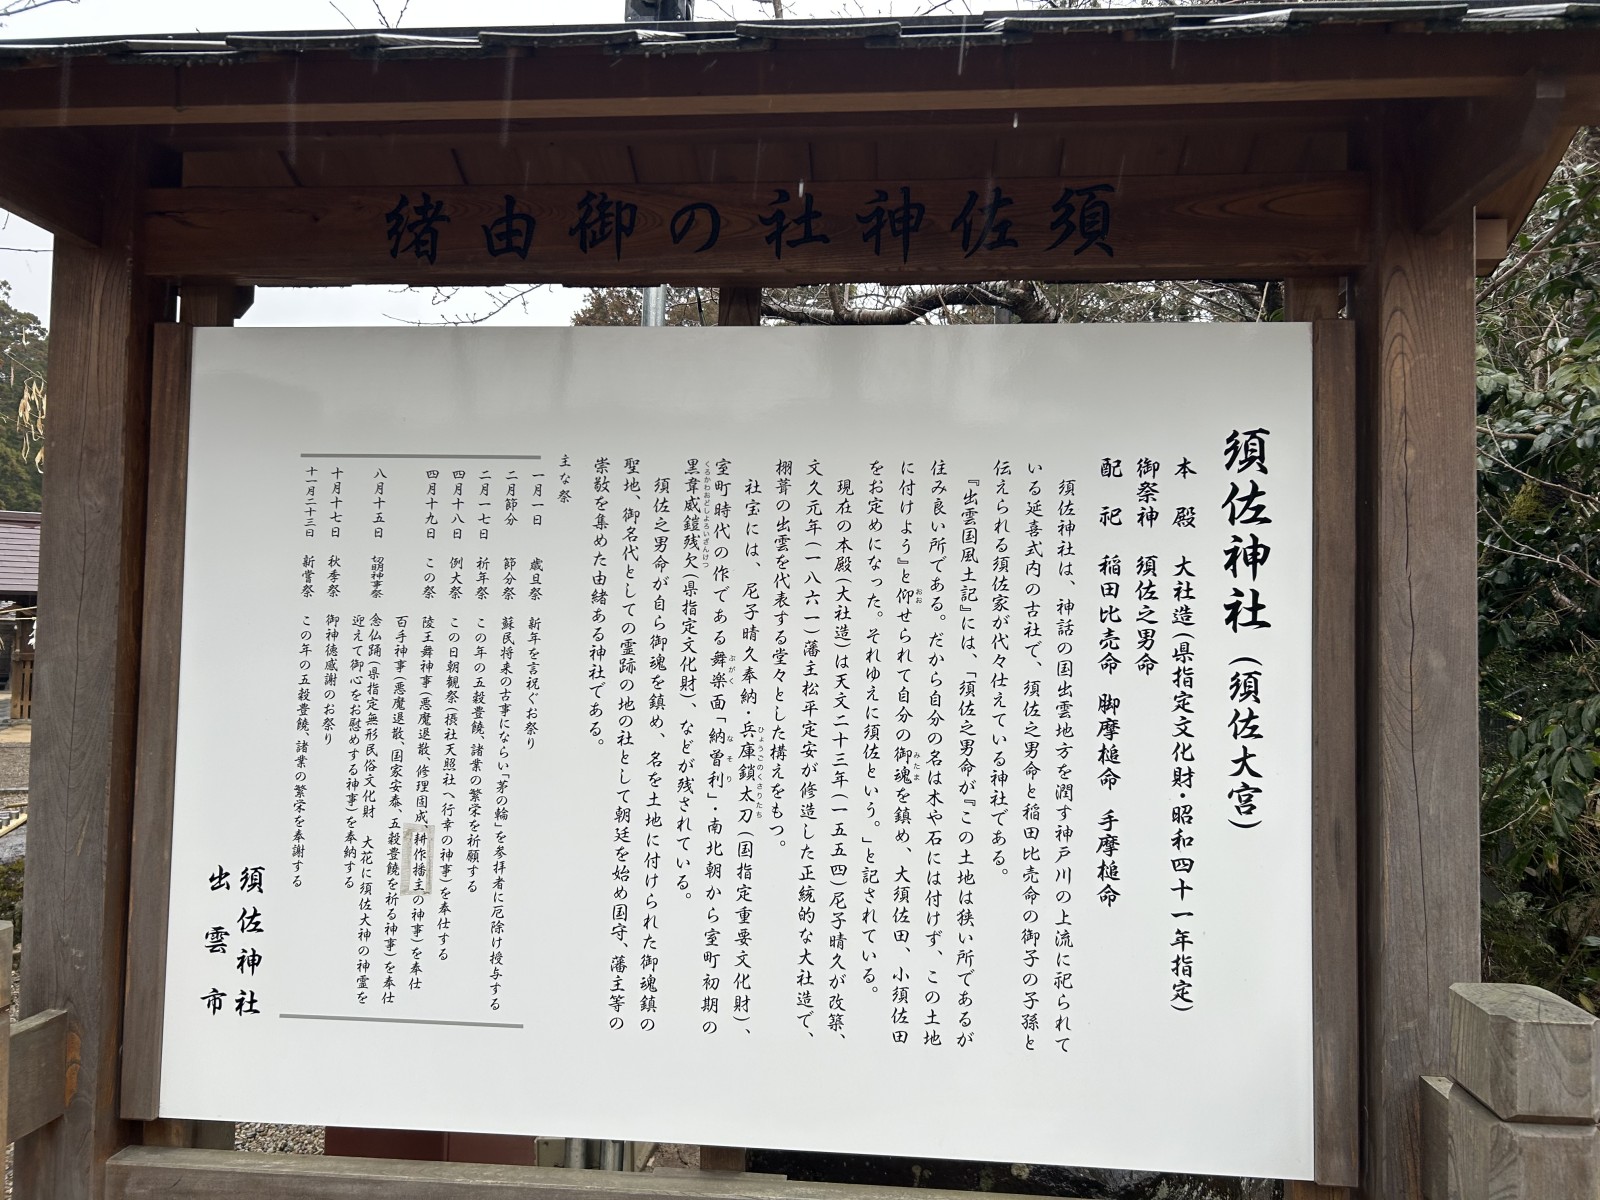 須佐神社の御由緒
須佐神社(須佐大宮)
本殿 大社造(県指定文化財・昭和四十一年指定)
御祭神 須佐之男命
配祀 稲田比売命 脚摩槌命 手摩槌命
須佐神社は、神話の国出雲地方を潤す神戸川の上流に祀られて
いる延喜式内の古社で、須佐之男命と稲田比売命の御子の子孫と
伝えられる須佐家が代々仕えている神社である。
『出雲国風土記』には、「須佐之男命が『この土地は狭い所であるが
住み良い所である。だから自分の名は木や石には付けず、この土地
に付けよう』と仰おおせられて自分の御魂みたまを鎮め、大須佐田、小須佐田
をお定めになった。それゆえに須佐という。」と記されている。
現在の本殿(大社造)は天文二十三年(一五五四)尼子晴久が改築、
文久元年(一八六一)藩主松平定安が修造した正統的な大社造で、
栩葺の出雲を代表する堂々とした構えをもつ。
社宝には、尼子晴久奉納・兵庫鎖太刀ひょうごのくさりたち(国指定重要文化財)、
室町時代の作である舞楽ぶがく面「納曽利なそり」・南北朝から室町初期の
黒韋威鎧残欠くろかわおどしよろいざんけつ(県指定文化財)、などが残されている。
須佐之男命が自ら御魂を鎮め、名を土地に付けられた御魂鎮の
聖地、御名代としての霊跡の地の社として朝廷を始め国守、藩主等の
崇敬を集めた由緒ある神社である。
主な祭
一月一日 歳旦祭 新年を言祝ぐお祭り
二月節分 節分祭 蘇民将来の古事にならい「茅の輪」を参拝者に厄除け授与する
二月一七日 祈年祭 この年の五穀豊饒、諸業の繁栄を祈願する
四月十八日 例大祭 この日朝覲祭(摂社天照社へ行幸の神事)を奉仕する
四月十九日 この祭 陵王舞神事(悪魔退散、修理固成、耕作播主の神事)を奉仕
百手神事(悪魔退散、国家安泰、五穀豊饒を祈る神事)を奉仕
八月十五日 切明神事祭 念仏踊(県指定無形民俗文化財 大花に須佐大神の神霊を
迎えて御心をお慰めする神事)を奉納する
十月十七日 秋季祭 御神徳感謝のお祭り
十一月二十三日 新嘗祭 この年の五穀豊饒、諸業の繁栄を奉謝する
須佐神社
出雲市